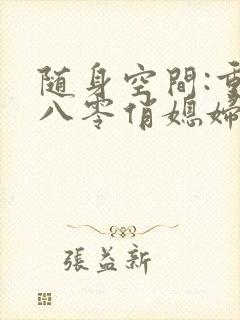 随身空間:重
八零俏媳婦
張益新